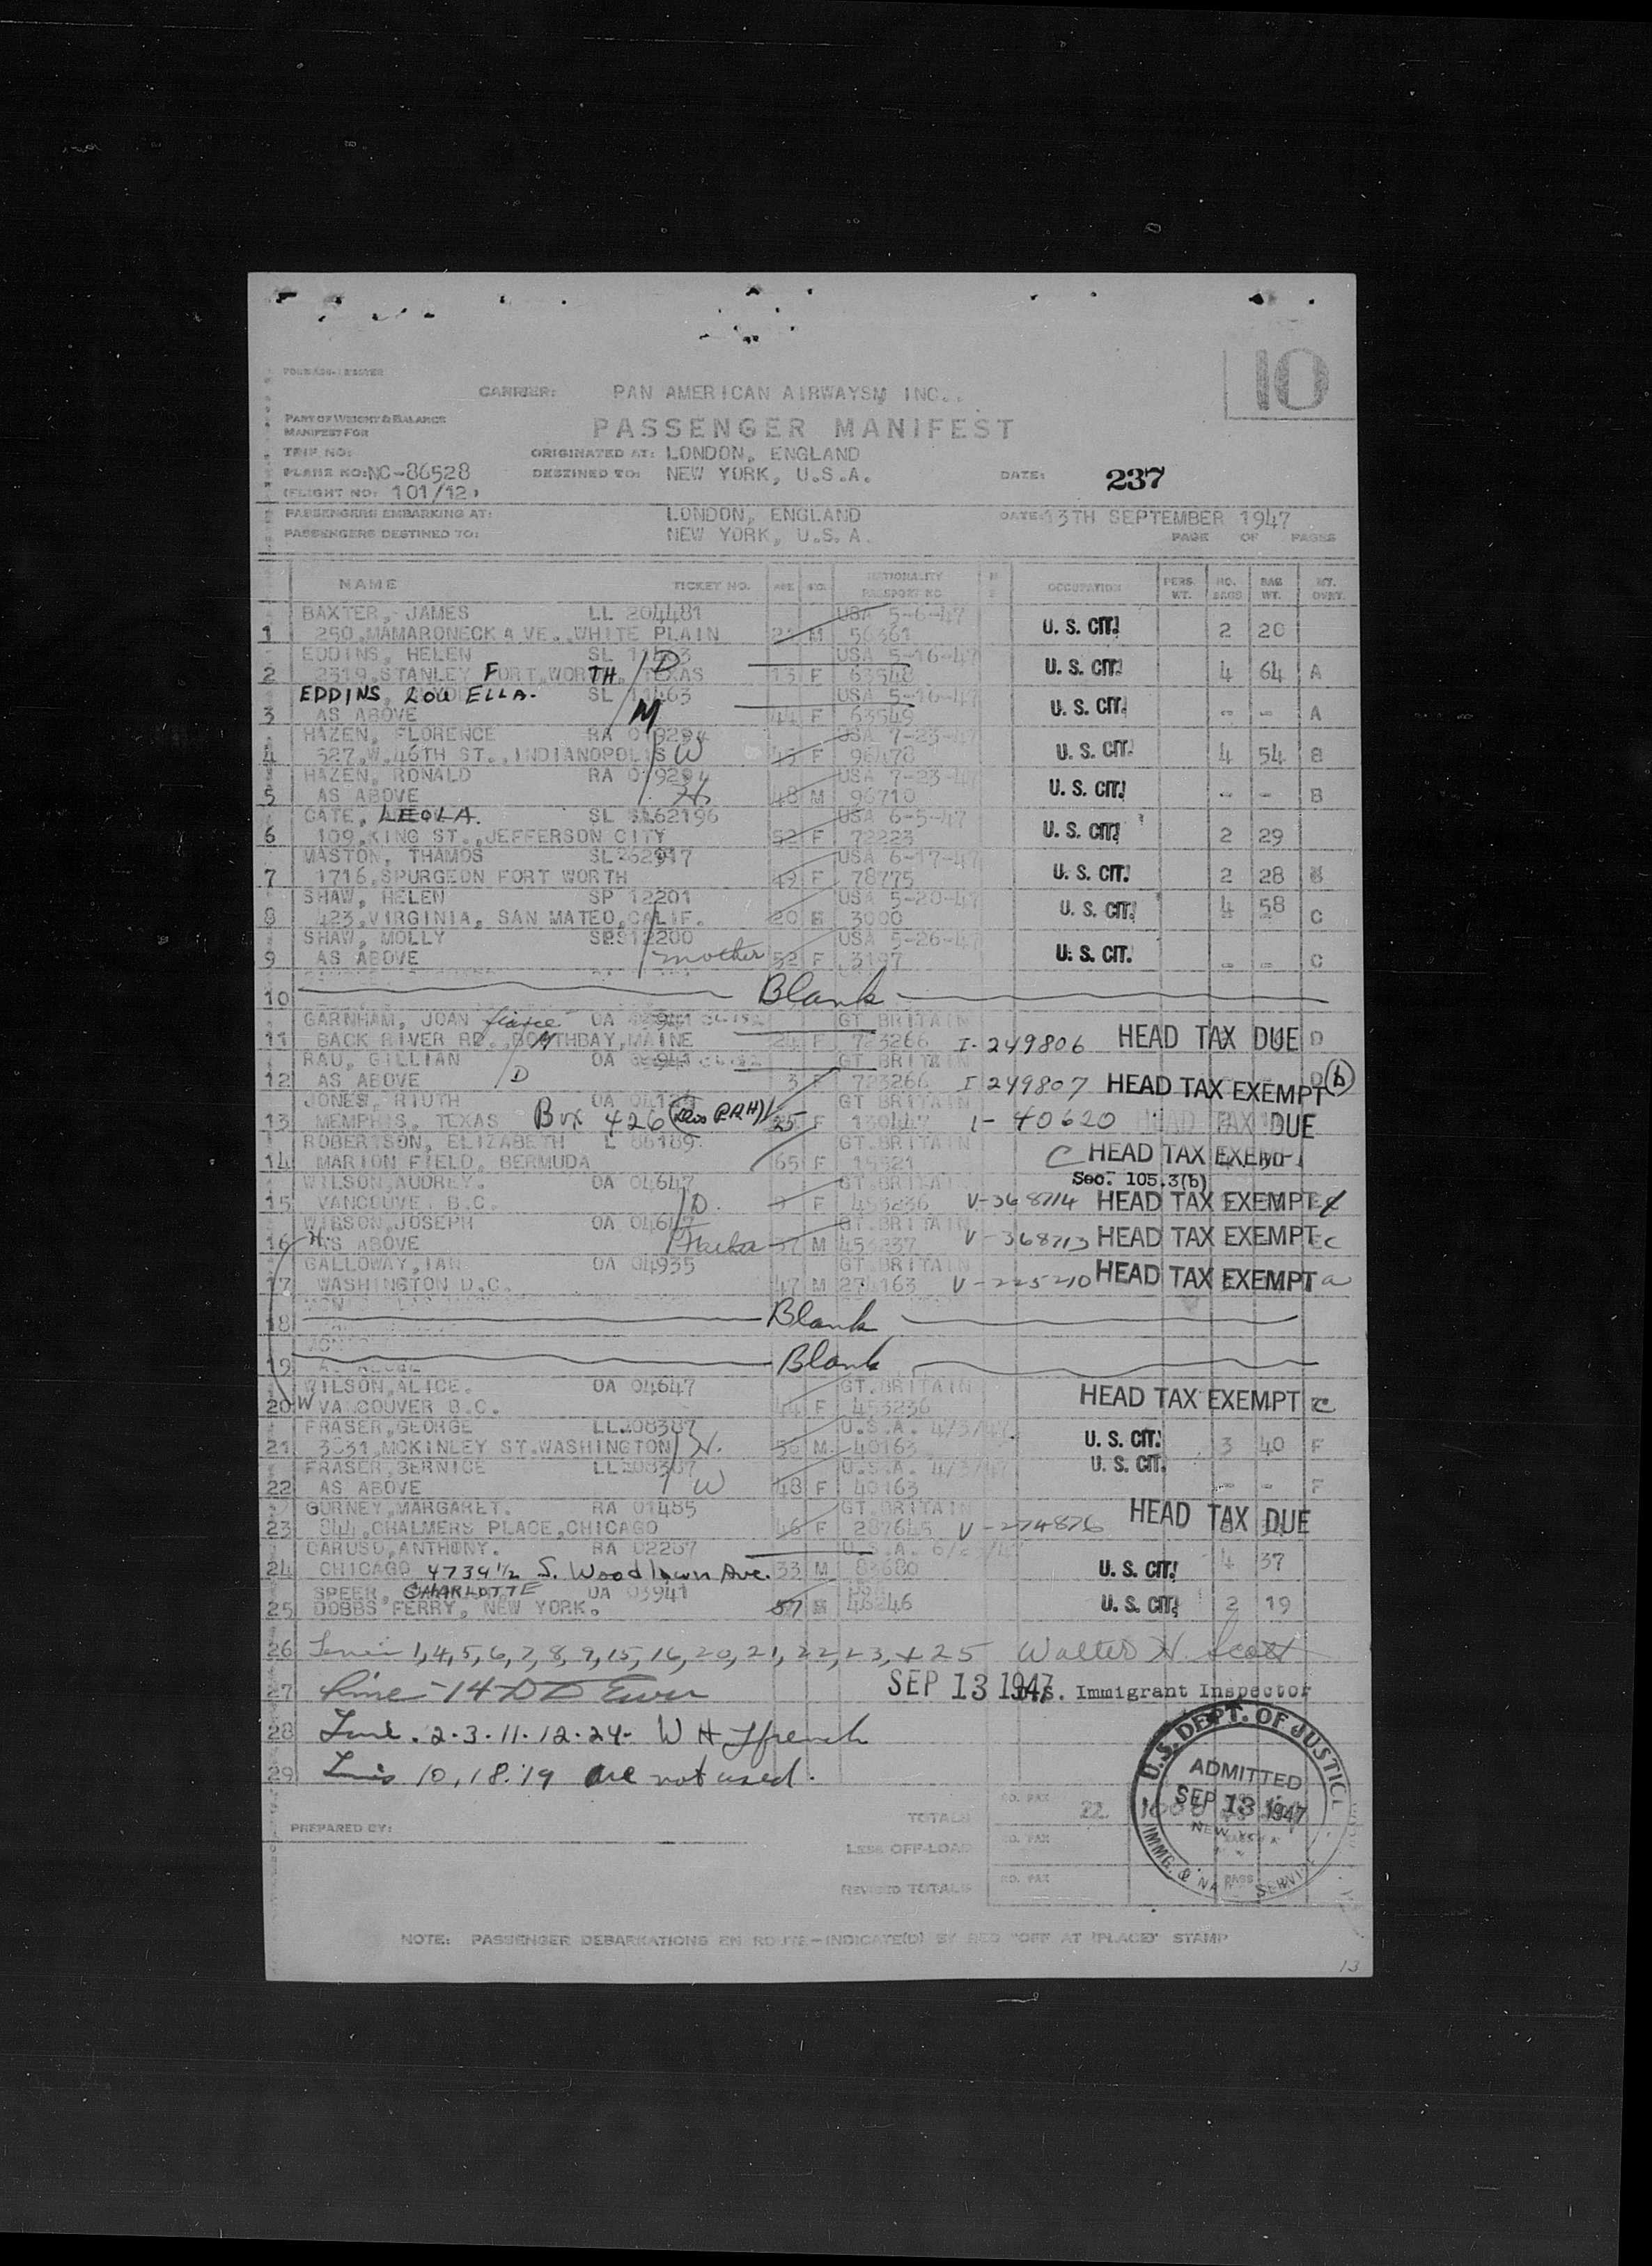 10
CARRIER: PAN AMERICAN AIRWAYSM INC..
PART OF WEIGHT & BALANCE
MANIFEST FOR
PASSENGER MANIFEST
TRIP NO: ORIGINATED AT: LONDON, ENGLAND
PLANE NO: NC-86528 DESTINED TO: NEW YORK, U.S.A. DATE: 237
(FLIGHT NO: 101/12)
PASSENGERS EMBARKING AT: LONDON, ENGLAND DATE: 13TH SEPTEMBER 1947
PASSENGERS DESTINED TO: NEW YORK, U.S.A. PAGE OF PAGES
NAME TICKET NO. AGE NATIONALITY PASSPORT NO. OCCUPATION PERS. WT. NO. BAGS BAG WT.
BAXTER, JAMES LL 204481 USA 5-6-47
1 250, MAMARONECK A VE., WHITE PLAIN M 56361 U. S. CIT. 2 20
EDDINS, HELEN SL USA 5-16-47
2 2319, STANLEY FORT WORTH, TEXAS D 13 F 63548 U. S. CIT. 4 64 A
EDDINS, LOU ELLA. SL 11463 USA 5-16-47
3 AS ABOVE M 44 F 63549 U. S. CIT. - - A
HAZEN, FLORENCE RA USA 7-23-47
4 527, W. 46TH ST., INDIANOPOLIS W 45 F 96478 U. S. CIT. 4 54 B
HAZEN, RONALD RA USA 7-23-4
5 AS ABOVE H 48 M 96710 U. S. CIT. - - B
CATE, LEOLA. SL 62196 USA 6-5-47
6 109, KING ST., JEFFERSON CITY 52 F 72223 U. S. CIT. 2 29
MASTON, THAMOS SL 262917 USA 6-17-47
7 1716, SPURGEON FORT WORTH 49 F 78775 U. S. CIT. 2 28
SHAW, HELEN SP 12201 USA 5-20-47
8 423, VIRGINIA, SAN MATEO, CALIF. 20 3000 U. S. CIT. 4 58 C
SHAW, MOLLY 12200 USA 5-26-4
9 AS ABOVE mother 52 F 3197 U. S. CIT. - - C
10 Blank
GARNHAM, JOAN OA GT BRITAIN
11 BACK RIVER RD., BOOTHBAY, MAINE M 24 F 723266 I-249806 HEAD TAX DUE D
RAU, GILLIAN OA GT BRITAIN
12 AS ABOVE D 3 F 723266 I 249807 HEAD TAX EXEMPT (b)
JONES, RIUTH OA GT BRITAIN
13 MEMPHIS, TEXAS Box 426 25 F I-40620 HEAD TAX DUE
ROBERTSON, ELIZABETH L 86189. GT.BRITAIN
14 MARION FIELD, BERMUDA 65 F 19321 C HEAD TAX EXEMPT
WILSON, AUDREY. OA 04647 GT.BRITAIN Sec. 105.3(b)
15 VANCOUVE B.C. D. F 453236 V-368714 HEAD TAX EXEMPT
WILSON, JOSEPH OA 04647 GT.BRITAIN
16 AS ABOVE H. Father M V-368713 HEAD TAX EXEMPT C
GALLOWAY, IAN OA 04935 GT.BRITAIN
17 WASHINGTON D.C. 47 M 274163 V-225210 HEAD TAX EXEMPT a
18 Blank
19 Blank
WILSON, ALICE. OA 04647 GT.BRITAIN
20 W VA COUVER B.C. 44 F 453236 HEAD TAX EXEMPT C
FRASER, GEORGE LL208387 U.S.A. 4/3/47
21 3831, MCKINLEY ST.WASHINGTON H. M 40163 U. S. CIT. 3 40 F
FRASER, BERNICE U.S.A. 4/3/47 U. S. CIT.
22 AS ABOVE W 48 F 40163 - - F
GURNEY, MARGARET. RA 01485 GT.BRITAIN
23 844, CHALMERS PLACE, CHICAGO 46 F 287645 V-274876 HEAD TAX DUE
CARUSO, ANTHONY. RA 02287 U.S.A.
24 CHICAGO 4739 1/2 S. Woodlawn Ave. 33 M 83680 U. S. CIT. 4 37
SPEER, CHARLOTTE OA 03941
25 DOBBS FERRY, NEW YORK. 57 46246 U. S. CIT. 2 19
26 1,4,5,6,7,8,9,15,16,20,21,22,23,+25 Walter H. Scott
27 Line - 14 SEP 13 1947 U.S. Immigrant Inspector
28 2.3.11.12.24. W H
29 10,18.19 are not used.
U.S. DEPT. OF JUSTICE
ADMITTED
SEP 13 1947
NEW YORK
IMMG. & NAT. SERVICE
TOTALS NO. PAX 22
PREPARED BY:
LESS OFF-LOAD NO. PAX
REVISED TOTALS NO. PAX BAGS
NOTE: PASSENGER DEBARKATIONS EN ROUTE—INDICATE(D) BY RED "OFF AT (PLACE)" STAMP
13